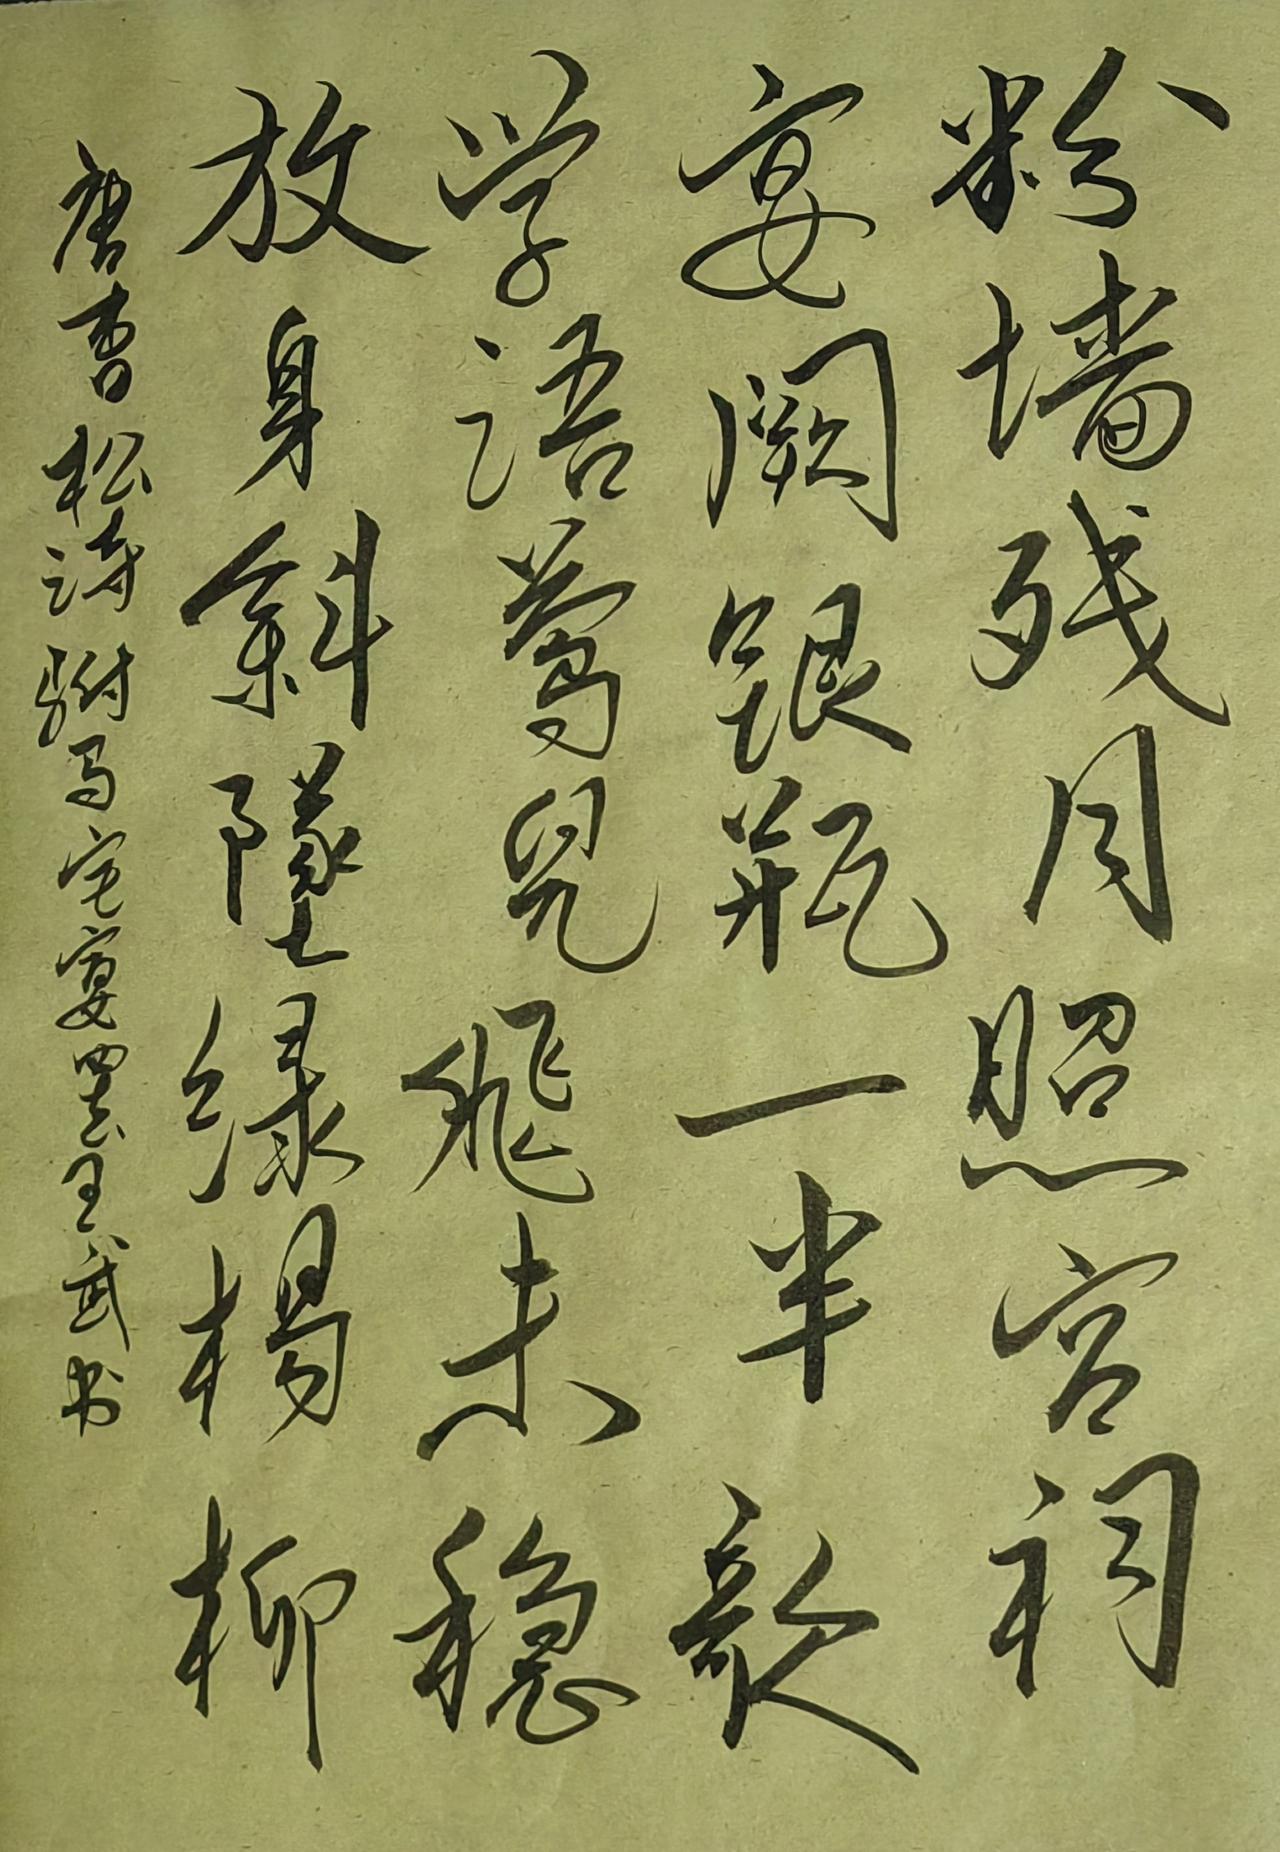 粉墙残月照宫祠
宴阙银瓶一半歌
学语莺儿飞未稳
放身斜坠绿杨柳
唐曹松诗驸马宅宴罢王武书